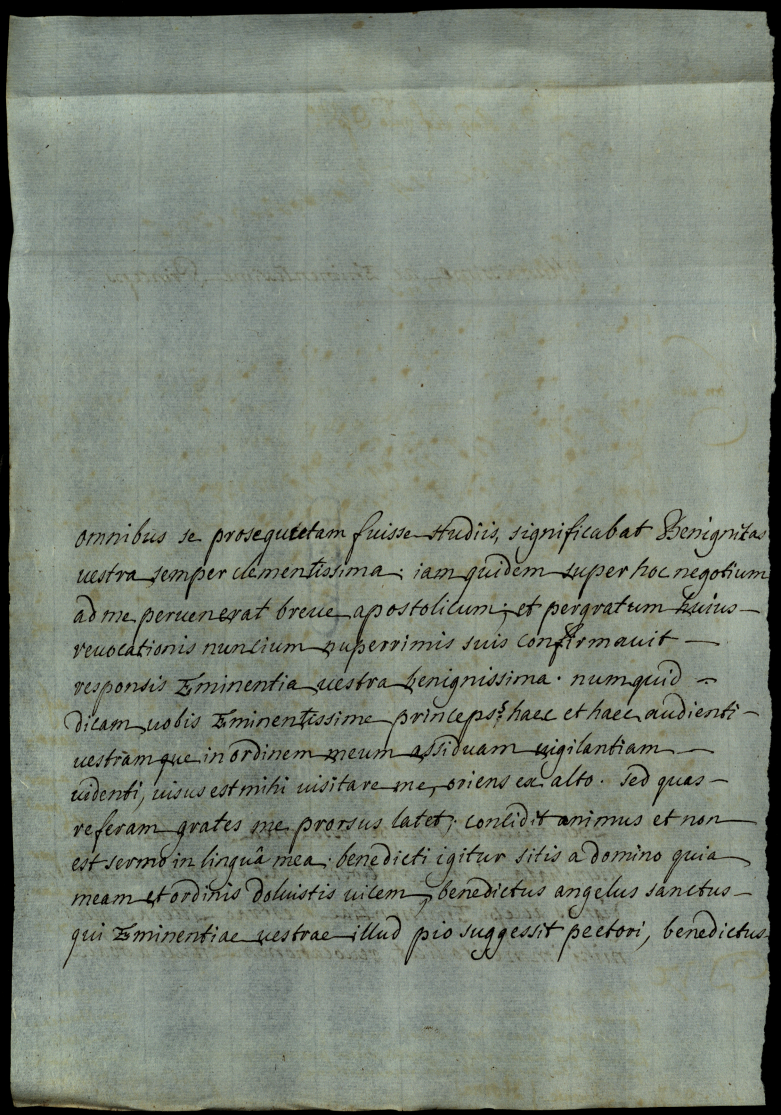 omnibus se prosequutam fuisse studiis, significabat Benignitas
vestra semper clementissima; iam quidem super hoc negotium
ad me peruenerat breue apostolicum; et pergratum huius
reuocationis nuncium nuperrimis suis confirmauit
responsis Eminentia uestra benignissima. numquid
dicam uobis Eminentissime princeps? haec et haec audienti
uestramque in ordinem meum assiduam uigilantiam
uidenti, uisus est mihi uisitare me, oriens ex alto. sed quas
referam grates me prorsus latet; concidit animus et non
est sermo in linguâ mea. benedicti igitur sitis a domino quia
meam et ordinis doluistis uicem, benedictus angelus sanctus
qui Eminentiae uestrae illud pio suggessit pectori, benedictus